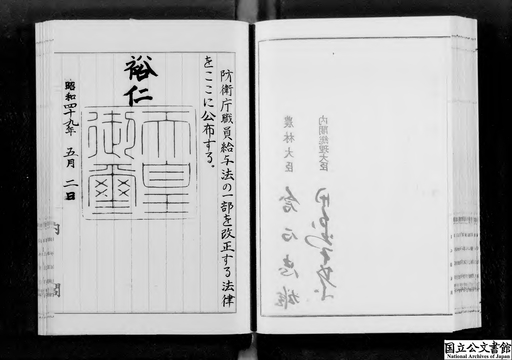 内閣総理大臣
農林大臣
倉石忠雄
防衛庁職員給与法の一部を改正する法律
をここに公布する。
裕仁
天皇御璽
昭和四十九年五月二日
内閣
国立公文書館
National Archives of Japan